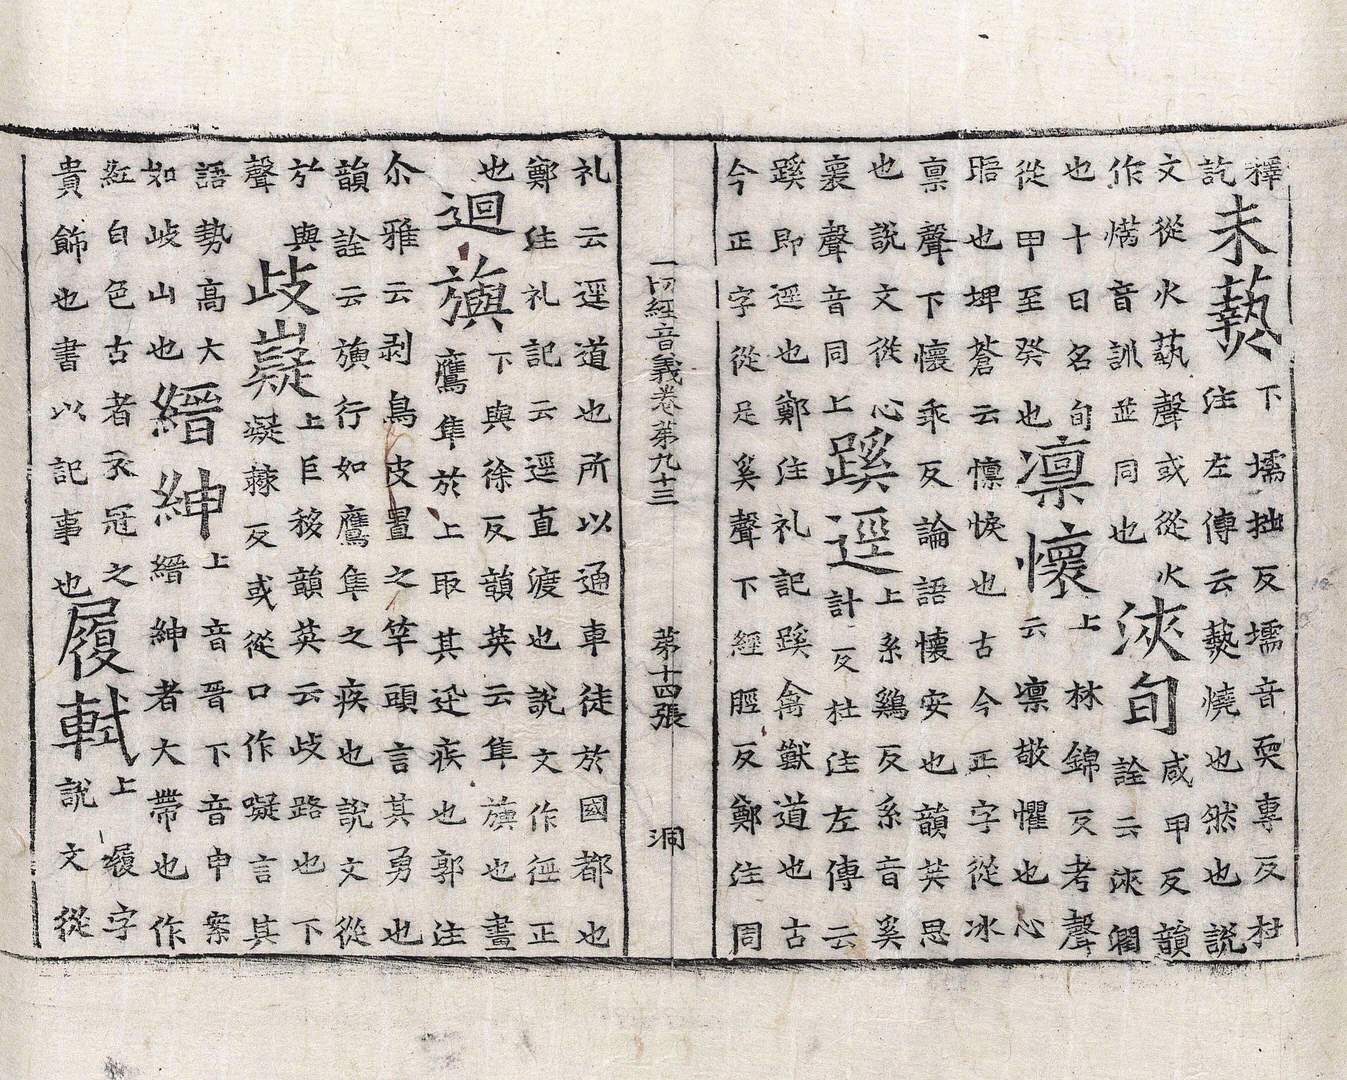 釋
訖
未爇
下壖拙反壖音耎專反杜
注左傳云爇燒也然也說
文從火蓺聲或從火
作焫音訓並同也
浹旬
咸甲反韻
詮云浹潤
也十日名旬
從甲至癸也
凛懷
上林錦反考聲
云凛敬懼也心
也埤蒼云懔悷也古今正字從冰
稟聲下懷乖反論語懷安也韻英思
也說文從心
褱聲音同上
蹊逕
上系鷄反系音奚
計反杜注左傳云
蹊即逕也鄭注礼記蹊禽獸道也古
今正字從足奚聲下經脛反鄭注同
一切經音義卷第九十三 第十四張 洞
礼云逕道也所以通車徒於國都也
鄭注礼記云逕直渡也說文作俓正
也
迴旟
下與徐反韻英云隼旟也畫
鷹隼於上取其迅疾也郭注
尒雅云剥鳥皮置之竿頭言其勇也
韻詮云旟行如鷹隼之疾也說文從
㫃與
聲
歧嶷
上巨移韻英云歧路也下
凝反或從口作嶷言其
語勢高大
如歧山也
縉紳
上音晋下音申案
縉紳者大帶也作
紅白色古者衣冠之
貴飾也書以記事也
履軾
上履字
說文從